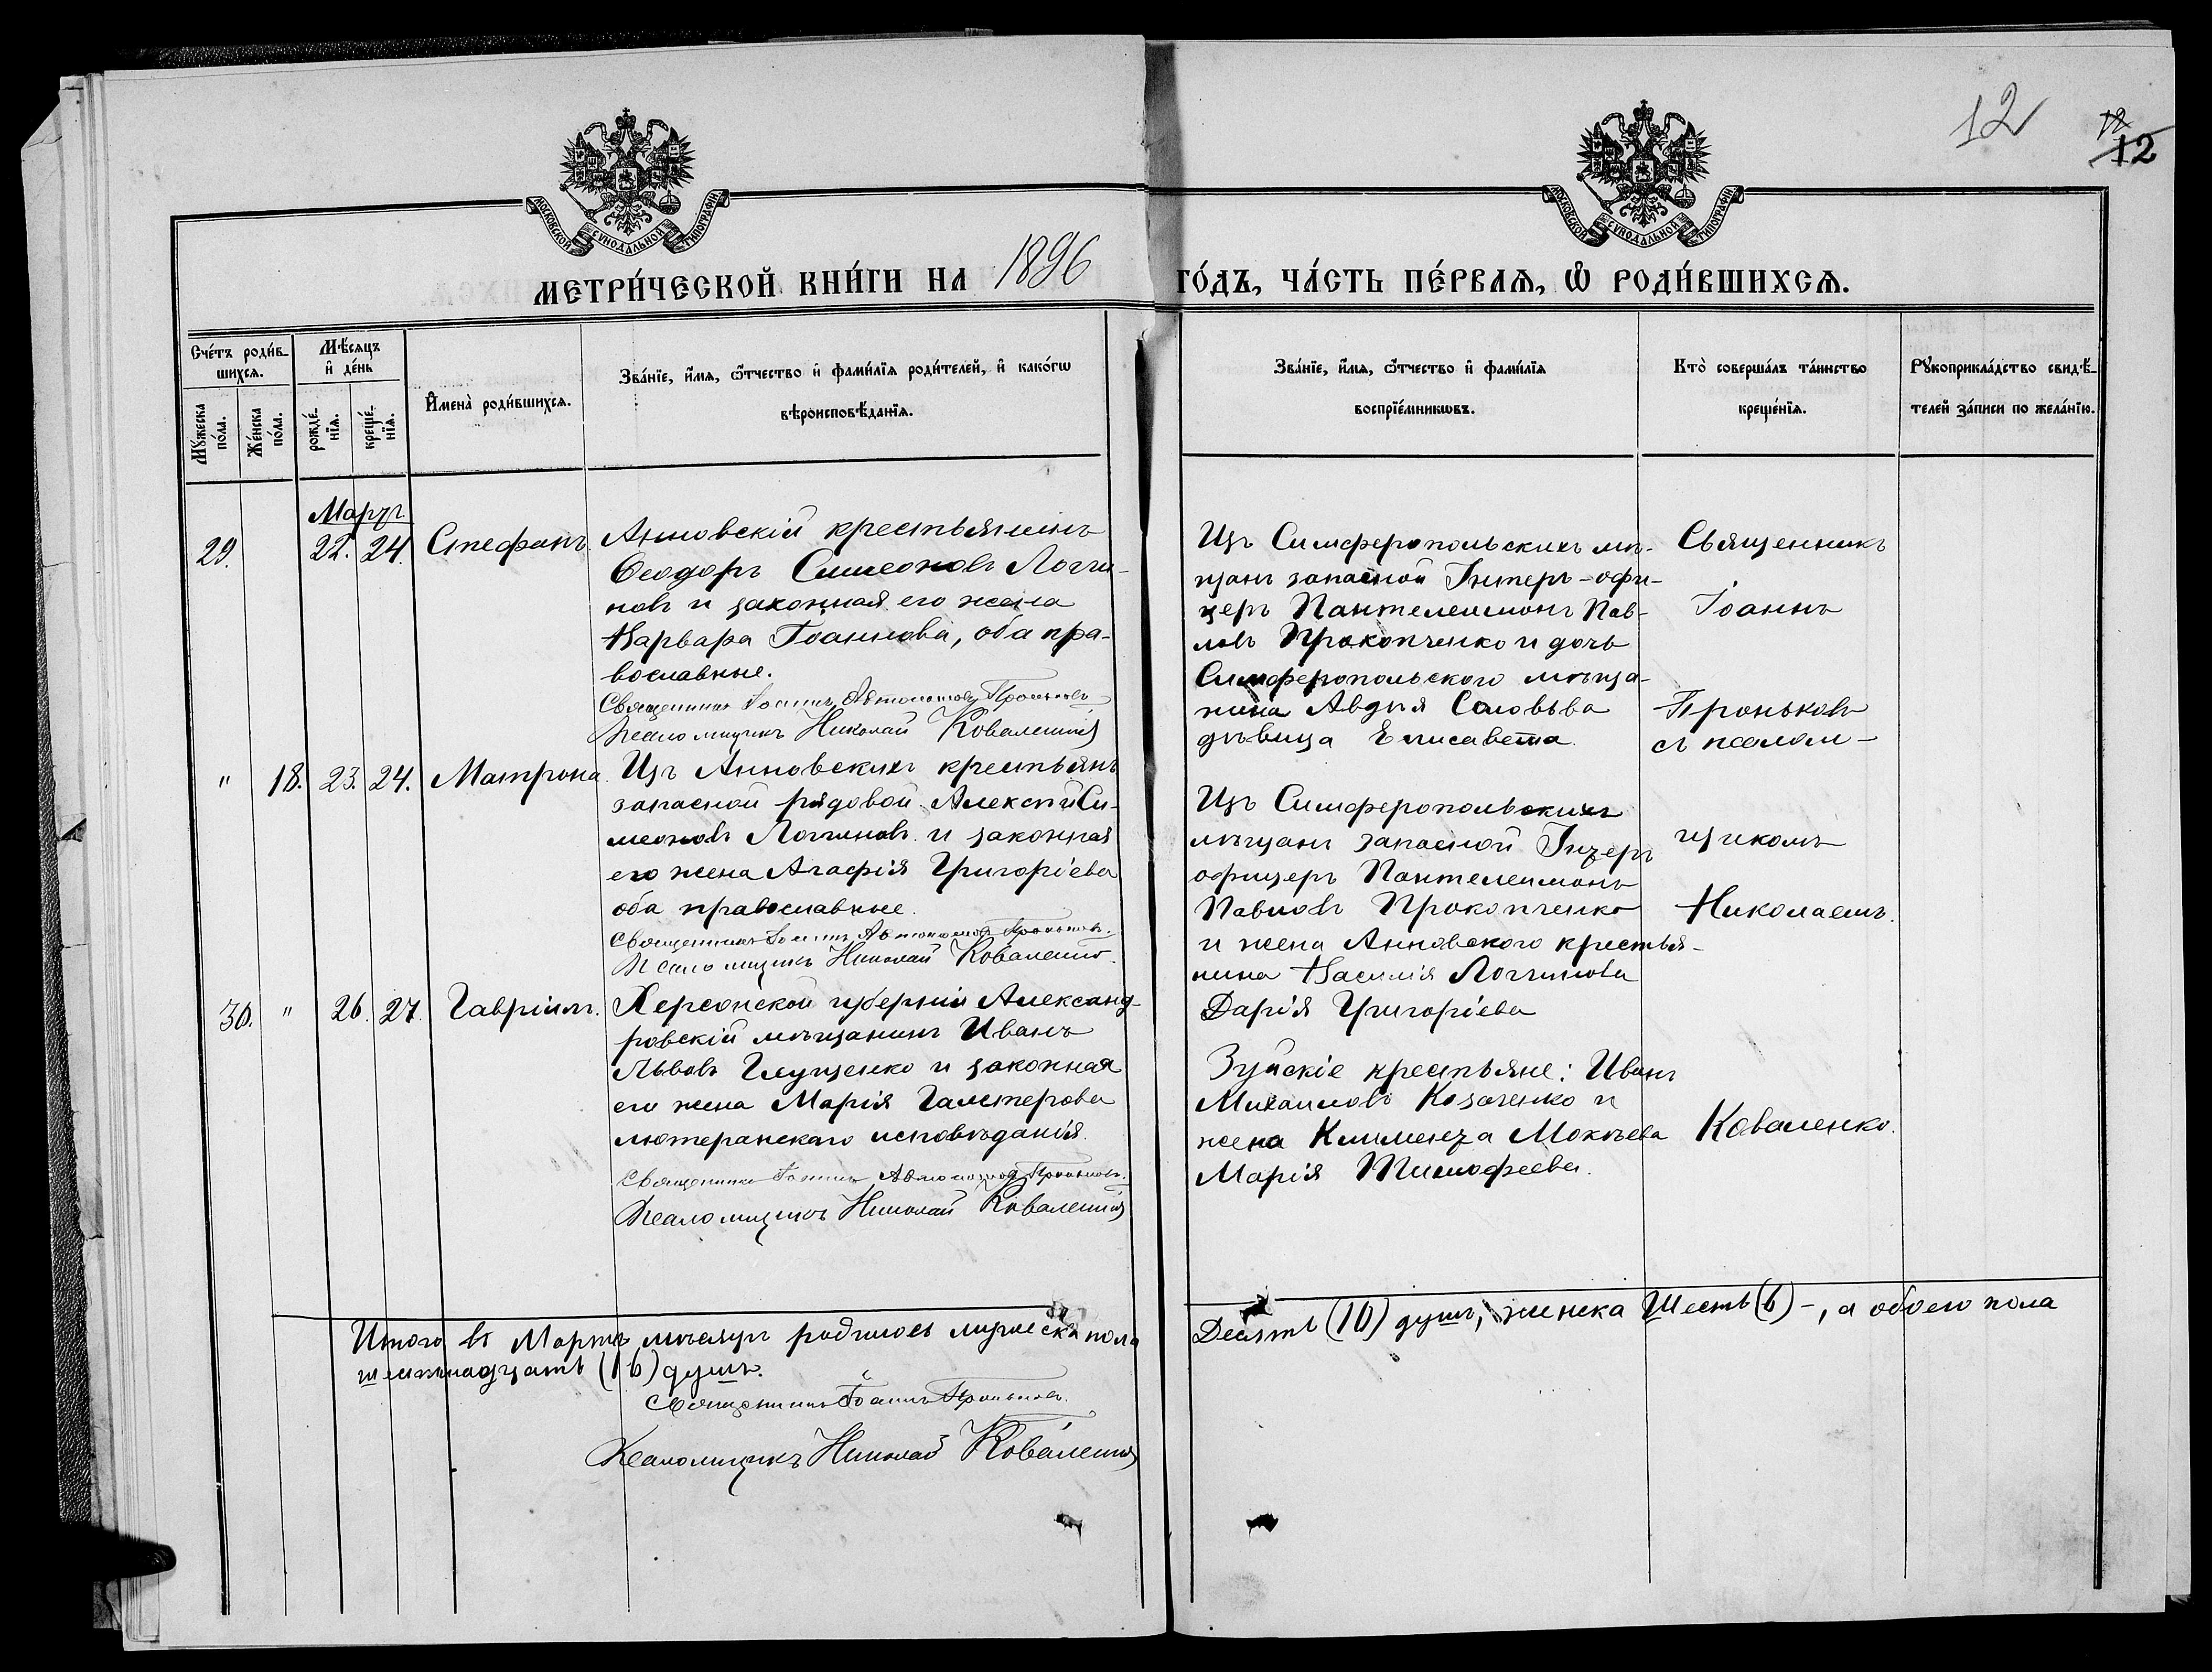 12
12
12
МОСКОВСКОЙ СѴНОДАЛЬНОЙ ТИПОГРАФІИ
МОСКОВСКОЙ СѴНОДАЛЬНОЙ ТИПОГРАФІИ
МЕТРИ́ЧЕСКОЙ КНИ́ГИ НА 1896 ГО́ДЪ, ЧА́СТЬ ПЕ́РВАѦ, Ѡ҆ РОДИ́ВШИХСѦ.
Сче́тъ роди́в-
шихсѧ.
Мꙋ́жеска
по́ла.
Же́нска
по́ла.
Мѣ́сѧцъ
и҆ де́нь
рожде́-
нїѧ.
креще́-
нїѧ.
И҆мена̀ роди́вшихсѧ.
Зва́нїе, и҆́мѧ, ѻ҆́тчество и҆ фами́лїѧ роди́телей, и҆ како́гѡ
вѣроисповѣ́данїѧ.
Зва́нїе, и҆́мѧ, ѻ҆́тчество и҆ фами́лїѧ
воспрїе́мникѡвъ.
Кто̀ соверша́лъ та́инство
креще́нїѧ.
Рꙋкоприкла́дство свидѣ́-
телей за́писи по жела́нїю.
Мартъ.
29. 22. 24. Стефанъ.
Анновскій крестьянинъ
Ѳеодоръ Симеоновъ Логви-
новъ и законная его жена
Варвара Іоаннова, оба пра-
вославные.
Священникъ Іоаннъ Автономовъ Проньковъ
Псаломщикъ Николай Коваленко
Изъ Симферопольскихъ мѣ-
щанъ запасной Унтеръ-офи-
церъ Пантелеимонъ Пав-
ловъ Прокопченко и дочь
Симферопольского мѣща-
нина Авдія Соловьва
дѣвица Елисавета.
Священникъ
Іоаннъ
Проньковъ
съ псалом-
" 18. 23. 24. Матрона.
Изъ Анновскихъ крестьянъ
запасной рядовой Алексѣй Си-
меоновъ Логвиновъ и законная
его жена Агафія Григоріева
оба православные.
Священникъ Іоаннъ Автономовъ Проньковъ.
Псаломщикъ Николай Коваленко.
Изъ Симферопольскихъ
мѣщанъ запасной Унтеръ
офицеръ Пантелеимонъ
Павловъ Прокопченко
и жена Анновского крестья-
нина Василія Логвинова
Дарія Григоріева
щикомъ
Николаемъ.
30. " 26. 27. Гавріилъ.
Херсонской губерніи Александ-
ровскій мѣщанинъ Иванъ
Львовъ Глущенко и законная
его жена Марія Галстерова
лютеранскаго исповѣданія.
Священникъ Іоаннъ Автономовъ Проньковъ.
Псаломщикъ Николай Коваленко
Зуйскіе крестьяне: Иванъ
Михаиловъ Козаченко и
жена Климента Мокѣева
Марія Тимофеева.
Коваленко.
Итого въ Мартѣ мѣсяцѣ родилось мужеска пола
Десять (10) душъ, женска Шесть (6) -, а обоего пола
шестнадцать (16) душъ.
Священникъ Іоаннъ Проньковъ.
Псаломщикъ Николай Коваленко